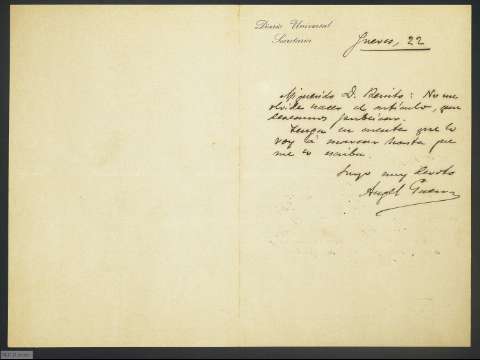 Diario Universal
Secretaría
Jueves, 22
Mi querido D. Benito: No me
olvide hacer el artículo, que
deseamos publicar.
Tenga en cuenta que lo
voy á marear hasta que
me lo escriba.
Suyo muy devoto
Angel Guerra